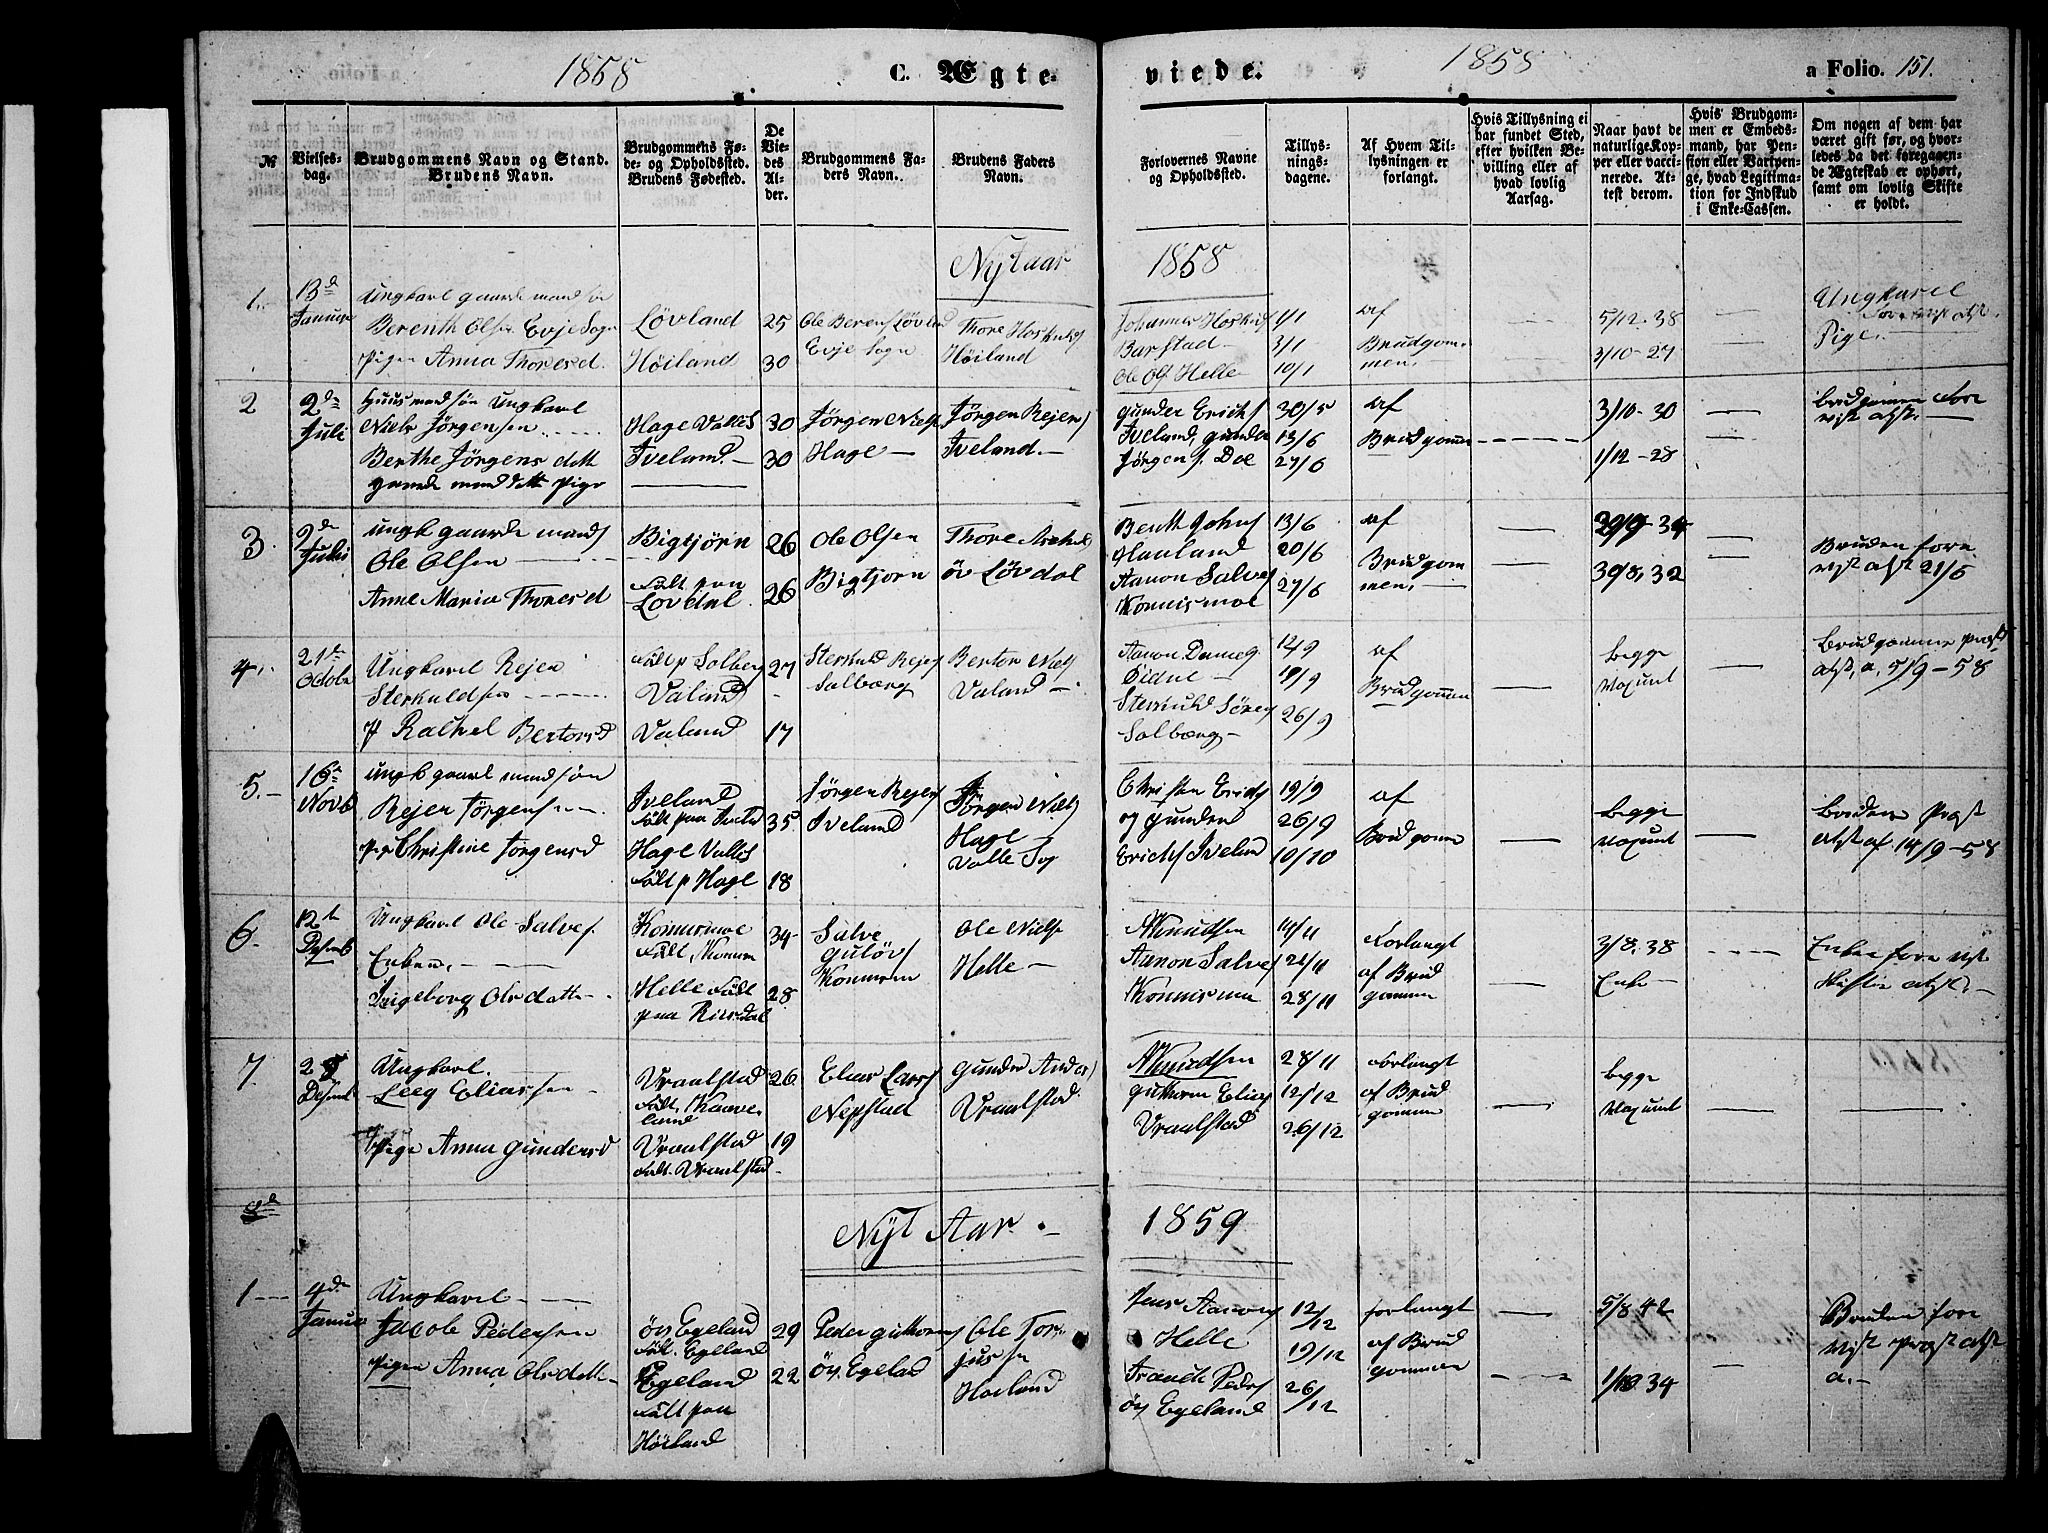 1858
C. Ægte-
viede.
1858
a Folio. 151.
№
Vielses-
dag.
Brudgommens Navn og Stand.
Brudens Navn.
Brudgommens Fø-
de- og Opholdssted.
Brudens Fødested.
De
Vie-
des
Al-
der.
Brudgommens Fa-
ders Navn.
Brudens Faders
Navn.
Forlovernes Navne
og Opholdssted.
Tillys-
nings-
dagene.
Af Hvem Til-
lysningen er
forlangt.
Hvis Tillysning ei
har fundet Sted,
efter hvilken Be-
villing eller af
hvad lovlig
Aarsag.
Naar havt de
naturlige Kop-
per eller vacci-
nerede. At-
test derom.
Hvis Brudgom-
men er Embeds-
mand, har Pen-
sion eller Vartpen-
ge, hvad Legitima-
tion for Indskud
i Enke-Cassen.
Om nogen af dem har
været gift før, og hvor-
ledes da det foregaaen-
de Ægteskab er ophørt,
samt om lovlig Skifte
er holdt.
Nytaar 1858
1.
13d
Januar
Ungkarl gaardmandsøn
Berenth Olsen Evje Sogn
Pigen Anna Thoresd.
Løvland
Høiland
25
30
Ole Berens Løvland
Evje Sogn
Thore
Høiland
Johannes
Barstad
Ole Ols Helle
1/1
3/1
10/1
af
Brudgom-
men.
5/12-38
3/10-27
Ungkarl
Pige.
2
2den
Juli
Huusmandsøn Ungkarl
Niels Jørgensen
Berthe Jørgensdatt
Pige
Hage Valles
Iveland
30
30
Jørgen Niels
Hage
Jørgen Rejers
Iveland
Gunder Erichs
Iveland, Gunder
Jørgens. Doe
30/5
13/6
27/6
af
Brudgommen
3/10-30
1/12-28
Brudgommen
3.
2de
Julii
Ungk gaardmands
Ole Olsen
Anne Maria Thoresd
Bigtjørn
Født paa
Løvdal
26
26
Ole Olsen
Bigtjørn
Thore
Løvdal
Berth Johns
Hauland
Aanon Salves
Konnismoe
13/6
20/6
27/6
af
Brudgom
men.
29/9-34
30/8.32
Bruden fore
vist atst 21/6
4.
21de
Octobe
Ungkarl Rejer
Sterkuldsen
P Rachel Bertorsd
Født p Solberg
Valand
Valand
27
17
Rejers
Solbærg
Bertor Niels
Valand
Aanon
Eidne
Sørens
Solbærg
12/9
19/9
26/9
af
Brudgommen
begge
Vaxunt
Brudgommen
atst, a. 5/9-58
5.
16de
Novb
Ungk gaardmandsøn
Rejer Jørgensen
Pige Christine Jørgensd
Iveland
Født paa
Hage Valles
Født p Hage
35
18
Jørgen Rejers
Iveland
Jørgen Niels
Hage
Valle Sog
Christen Erichs
og Gunder
Erichs Iveland
19/9
26/9
10/10
af
Brudgomme
begge
vaxunt
Bruden Præst
atst af 14/9-58
6.
12te
Desemb
Ungkarl Ole Salves.
Enken
Ingeborg Olsdatte
Konnismoe
Født, Konnism
Helle Født
paa
34
28
Salve
Konnismo
Ole Niels
Helle
AKnudsen
Aanon Salves
Konnismoe
14/11
21/11
28/11
Forlangt
af Brud
gommen
3/8.38
Enke
Enken forevist
Skifte atst.
7.
Desemb
Ungkarl
Leeg Eliassen
Pige Anna Gundersd
Vraalstad
Født,
land
Vraalstad
Født. Vraalstad
26
19
Elias Lars
Nepstad
Gunder Anders
Vraalstad
AKnudsen
Guttorm Elias
Vraalstad
28/11
12/12
26/12
Forlangt
af Brud
gommen
begge
Vaxunt
8d
Nyt Aar. 1859
1
4de
Januar
Ungkarl
Jacob Pedersen
Pigen Anna Olsdatte
Øv. Egeland
Født. Egeland
Egeland
Født paa
Høiland
29
22
Peder Guttorms
Øv. Egeland
Ole Tor-
jussen
Hoiland
Jens Aanons
Helle
Traads Peders
Øv Egeland
12/12
19/12
26/12
forlangt
af Brud
gommen
5/8.42
1/10.34
Bruden fore
vist Præst atst
a.